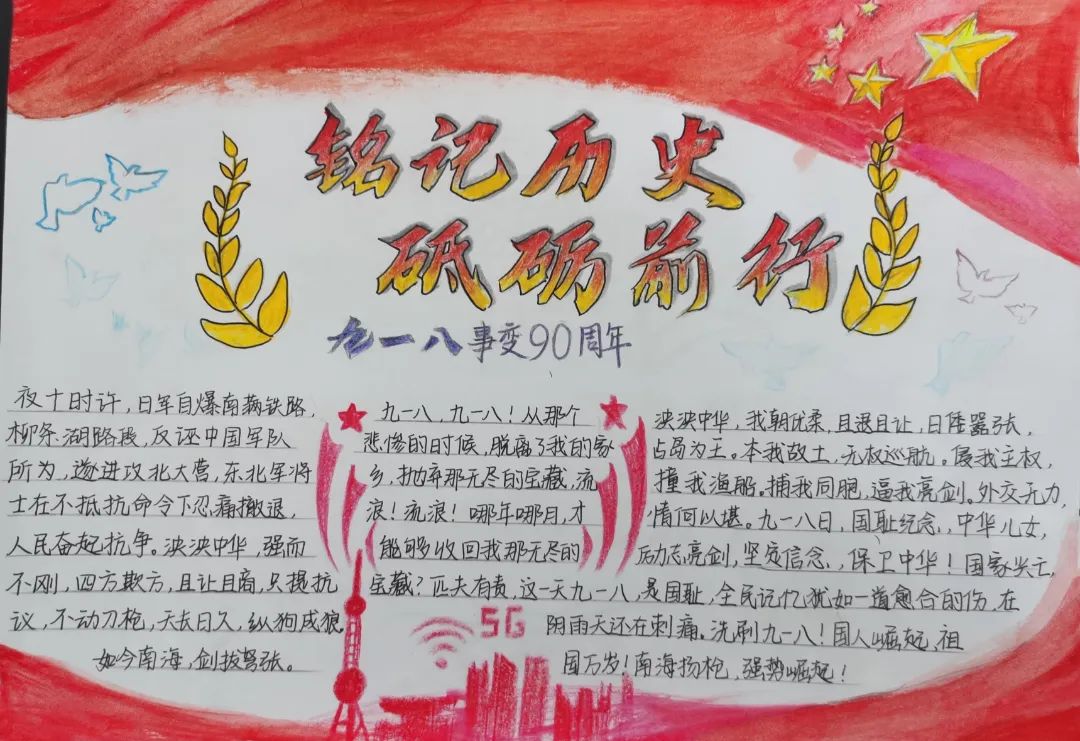 铭记历史
砥砺前行
九一八事变90周年
夜十时许，日军自爆南满铁路，
柳条湖路段，反诬中国军队
所为，遂进攻北大营，东北军将
士在不抵抗命令下忍痛撤退，
人民奋起抗争。泱泱中华，强而
不刚，四方欺方，且让且商，只提抗
议，不动刀枪，天长日久，纵狗成狼。
如今南海，剑拔弩张。
九一八，九一八！从那个
悲惨的时候，脱离了我的家
乡，抛弃那无尽的宝藏，流
浪！流浪！哪年哪月，才
能够收回我那无尽的
宝藏？匹夫有责，这一天九一八，是国耻，全民记忆犹如一道愈合的伤，在
阴雨天还在刺痛。洗刷九一八！国人崛起，祖
国万岁！南海扬枪，强势崛起！
泱泱中华，我朝优柔，且退且让，日倭嚣张，
占岛为王。本我故土，无权巡航。辱我主权，
撞我渔船。捕我同胞，逼我亮剑。外交无力，
情何以堪。九一八日，国耻纪念，中华儿女，
励志亮剑，坚定信念，保卫中华！国家兴亡，
5G